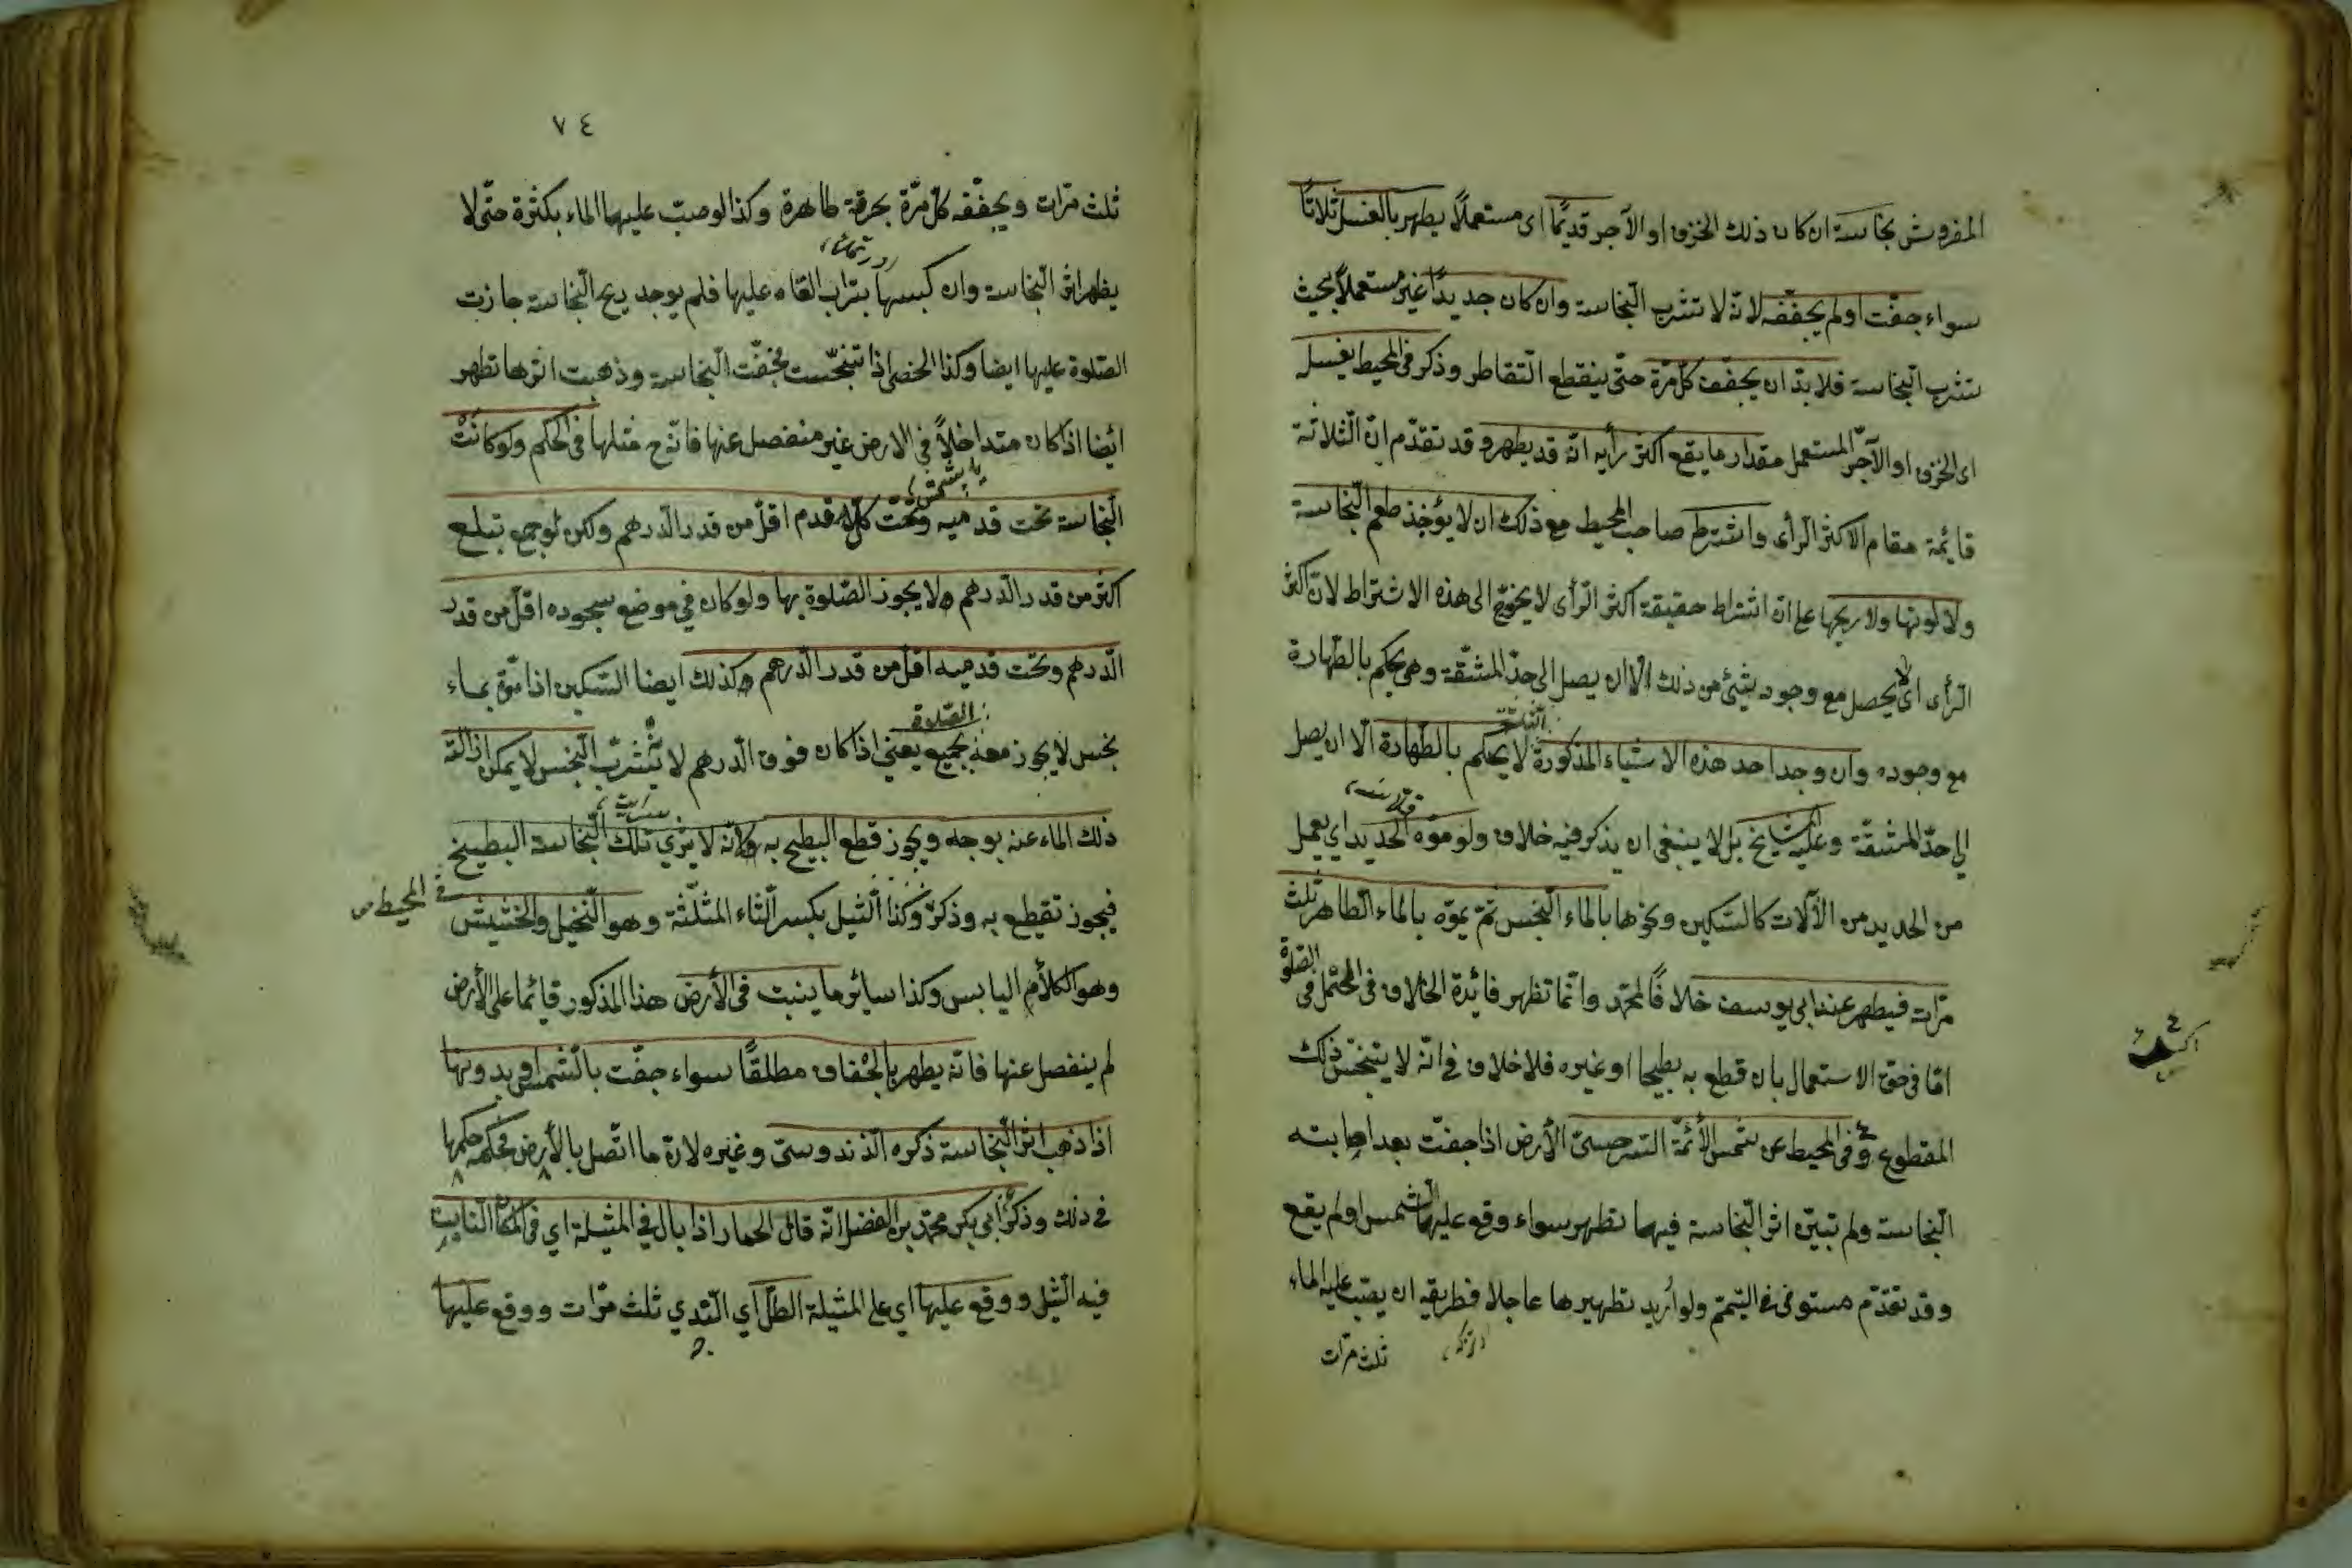 المفروش نجاسة ان كان ذلك الخزف او الآجر قديمًا اى مستعملًا يطهر بالغسل ثلاثًا
سواء جفّت او لم يجفّفه لانّه لا تشرب النّجاسة وان كان جديدًا غير مستعملًا بحيث
تشرب النّجاسة فلا بدّ ان يجفّف كلّ مرّة حتّى ينقطع التّقاطر وذكر فى المحيط يغسل
اى الخزف او الآجرّ المستعمل مقدار ما يقع اكثر رأيه انّه قد يطهر وقد تقدّم انّ الثّلاثة
قائمة مقام الاكثر الرّأى واشترط صاحب المحيط مع ذلك ان لا يؤخذ طعم النّجاسة
ولا لونها ولا ريحها على انّ اشتراط حقيقة اكثر الرّأى لا يخوّج الى هذه الاشتراط لانّ اكثر
الرّأى اى لا يحصل مع وجود شئ من ذلك الّا ان يصل الى حدّ المشقّة وهى يحكم بالطّهارة
مع وجوده وان وجد احد هذه الاشياء المذكورة لا يحكم بالطّهارة الّا ان يصل
الى حدّ المشقّة وعليه بل لا ينبغى ان يذكر فيه خلاف ولو موّه الحديد اي يعمل
من الحديد من الآلات كالسّكين ونحوها بالماء النّجس ثمّ يموّه بالماء الطّاهر ثلث
مرّات فيطهر عند ابى يوسف خلافًا لمحمّد وانّما تظهر فائدة الخلاف فى فى الصّلوة
امّا فى حقّ الاستعمال بان قطع به بطيخا او غيره فلا خلاف فى انّه لا يتنجّس ذلك
المقطوع وفى المحيط عن شمس الأئمّة السّرخسىّ الأرض اذا جفّت بعد اصابته
النّجاسة ولم تبيّن اثر النّجاسة فيها تطهر سواء وقع عليها الشّمس او لم يقع
وقد تقدّم مستوفى فى التيمّم ولو أريد تطهيرها عاجلا فطريقه ان يصبّ عليه الماء
ثلث مرّات
٧٤
ثلث مرّات ويجفّفه كلّ مرّة بخرقة طاهرة وكذا لو صبّ عليها الماء بكثرة حتّى لا
يظهر اثر النّجاسة وان كبسها بتراب القاه عليها فلم يوجد ريح النّجاسة جازت
الصّلوة عليها ايضا وكذا الحصى اذا تنجّست فجفّت النّجاسة وذهبت اثرها تطهر
ايضا اذا كان متداخلاً فى الارض غير منفصل عنها فانّه ح مثلها فى الحكم ولو كانت
النّجاسة تحت قدميه وتحت كلّ قدم اقلّ من قدر الدّرهم ولكن لو جمع تبلغ
اكثر من قدر الدّرهم ولا يجوز الصّلوة بها ولو كان في موضع سجوده اقلّ من قدر
الدّرهم وتحت قدميه اقلّ من قدر الدّرهم وكذلك ايضا السّكين اذا موّه بماء
الصّلاة
نجس لا يجوز معه يعنى اذا كان فوق الدّرهم لا تشرّب النّجس لا يمكن ازالة
ذلك الماء عنه بوجه ويجوز قطع البطيخ به ولانّه لا يرى تلك النّجاسة البطيخ
فى المحيط
فيجوز تقطيع به وذكر وكذا الثّيل بكسر الثّاء المثلّثة وهو النّخيل والخشيش
وهو الكلأ اليابس وكذا سائر ما ينبت فى الأرض هذا المذكور قائما على الأرض
لم ينفصل عنها فانّه يطهر بالجفاف مطلقًا سواء جفّت بالشّمس او بدونها
اذا ذهب اثر النّجاسة ذكره الزندوستىّ وغيره لانّ ما اتّصل بالأرض فحكمه حكمها
فى ذلك وذكر ابى بكر محمّد بن الفضل انّه قال الحمار اذا بال في المثيلة اي فى المكان النّابت
فيه الثّيل ووقع عليها اي على المثيلة الطّلّ اي النّدي ثلث مرّات ووقع عليها